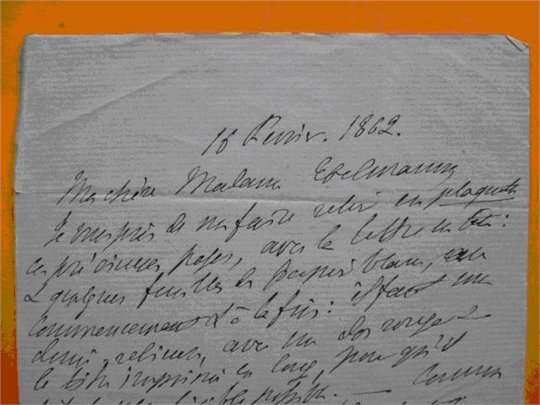 16 Février. 1862.
Ma chère Madame Edelmann
Je vous prie de me faire relier en plaquette
ces précieuses pages, avec la lettre en tête:
& quelques feuilles de papier blanc, au
commencement & à la fin: il faut une
demi-reliure, avec un dos rouge
le titre imprimé en long, pour qu'il